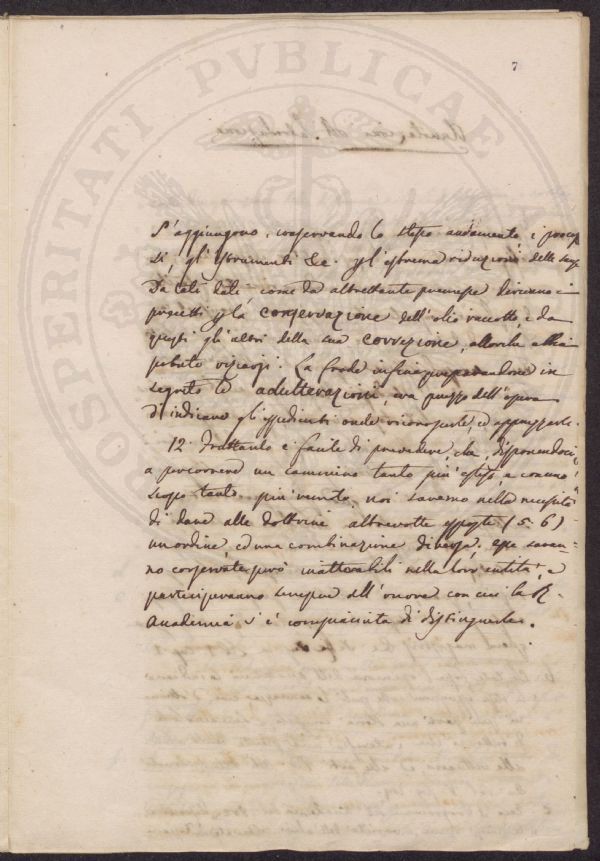 PROSPERITATI PVBLICAE
7
S'aggiungono, conservando lo stesso andamento, i processi
si, gl'istrumenti &c. p l'estrema riduzione delle
Da tali dati come da altrettante premesse derivano i
precetti p la conservazione dell'olio raccolto, e da
questi gli altri della sua correzione, allorchè abbia
potuto viziarsi. La frode infine preparandone in
segreto le adulterazioni, era prezzo dell'opera
d'indicare gli espedienti onde riconoscerle, ed apprezzarle.
12. Frattanto è facile di prevedere, che, disponendoci
a percorrere un cammino tanto più esteso, e con uno
scopo tanto più, noi saremo nella necessità
di dare alle dottrine altrevolte esposte (5. 6)
un ordine, ed una combinazione diversa; esse saran-
no conservate però inalterabili nella loro entità, e
parteciperanno sempre all'onore con cui la R.
Accademia si è compiaciuta di distinguerle.